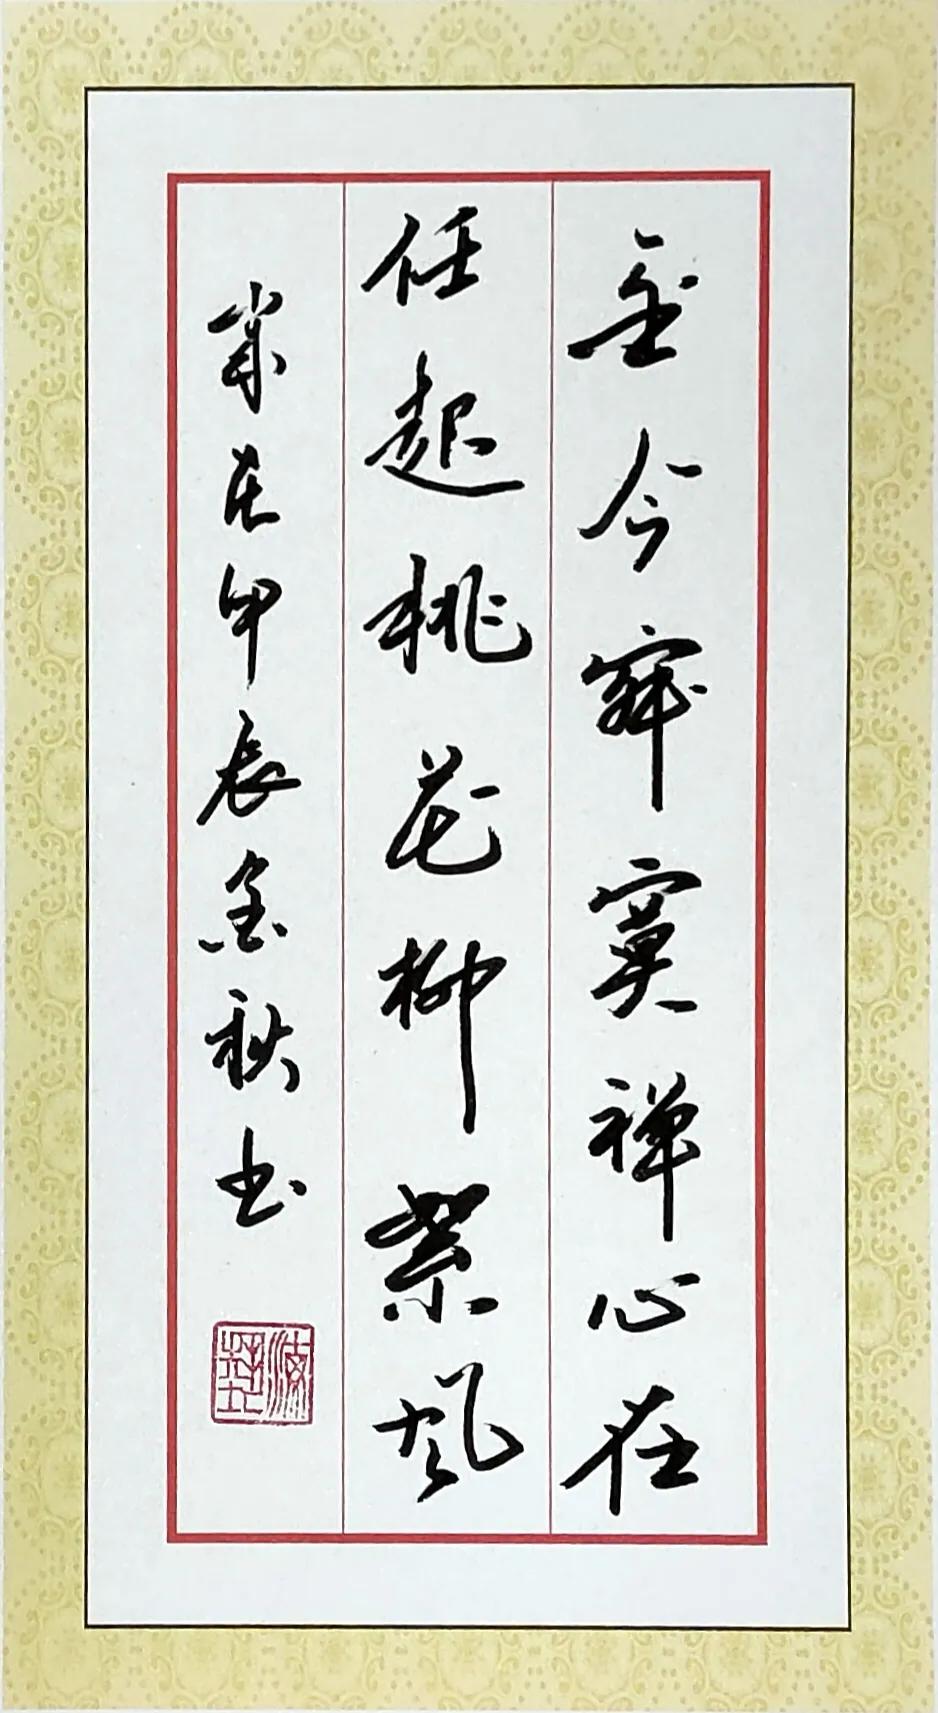 至今寂寞禅心在
任起桃花柳絮风
岁在甲辰金秋书